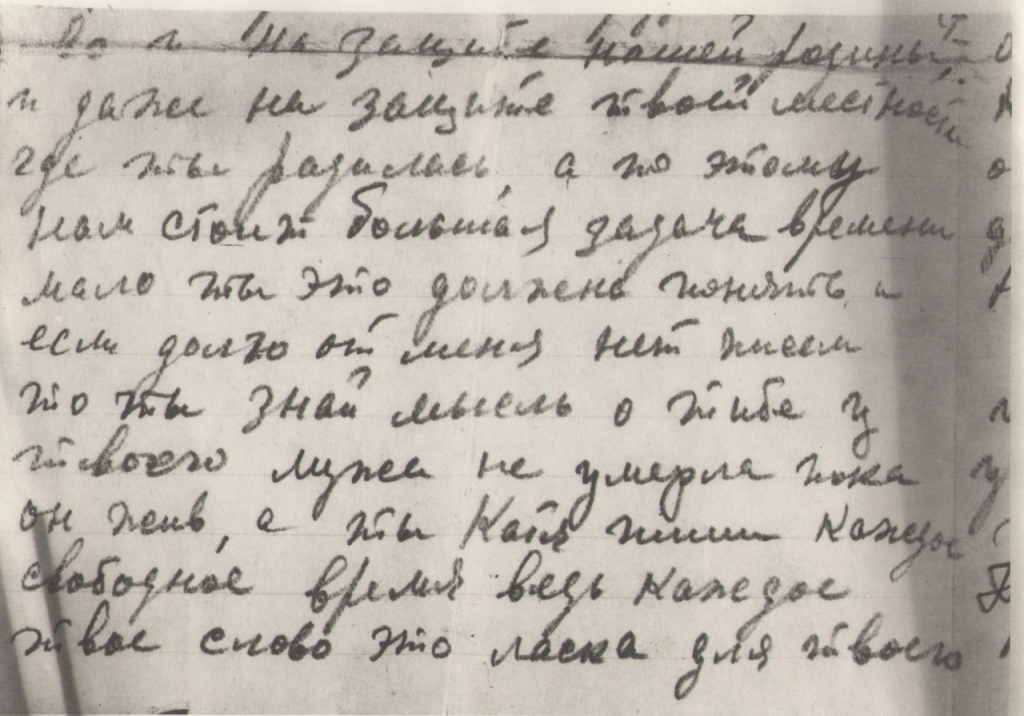 на защите нашей родины
и даже на защите твоей местности
где ты радилась, а по этому
нам стоит большая задача времени
мало ты это должена понять и
если долго от меня нет писем
то ты знай мысль о тибе у
твоего мужа не умерла пока
он жив, а ты Катя пиши каждое
свободное время ведь каждое
твое слово это ласка для твоего